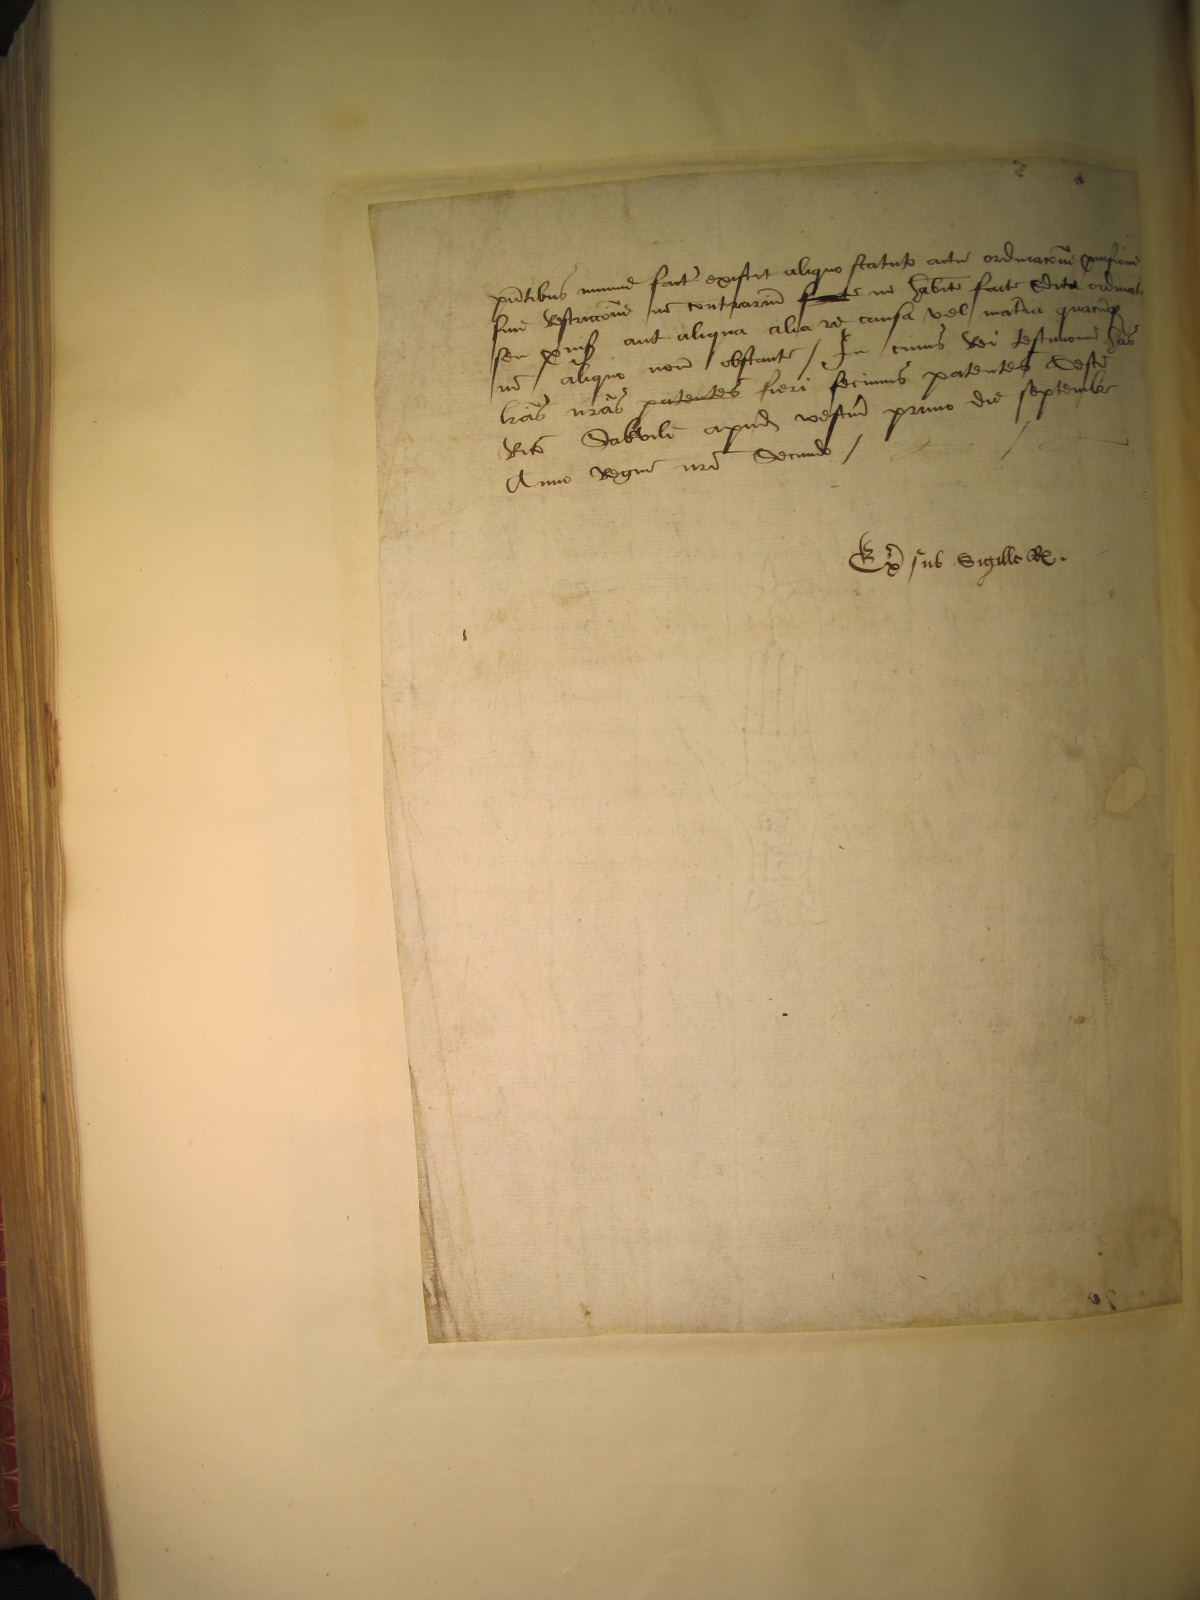 pñtibus minime fact existit aliquo statuto actu ordinacõne provisione
sive restriccõne in contrariũ inde habit fact edit ordinat
seu provis aut aliqua alia re causa vel mat̃ia quacũq
in aliquo non obstante / In cuius Rei testimoniũ has
lr̃as nr̃as patentes fieri fecimus patentes Teste
Ric Sakvile apud westm̃ primo die septembr
Anno Regni nr̃i Secundo /
Ex sub Sigillo R.